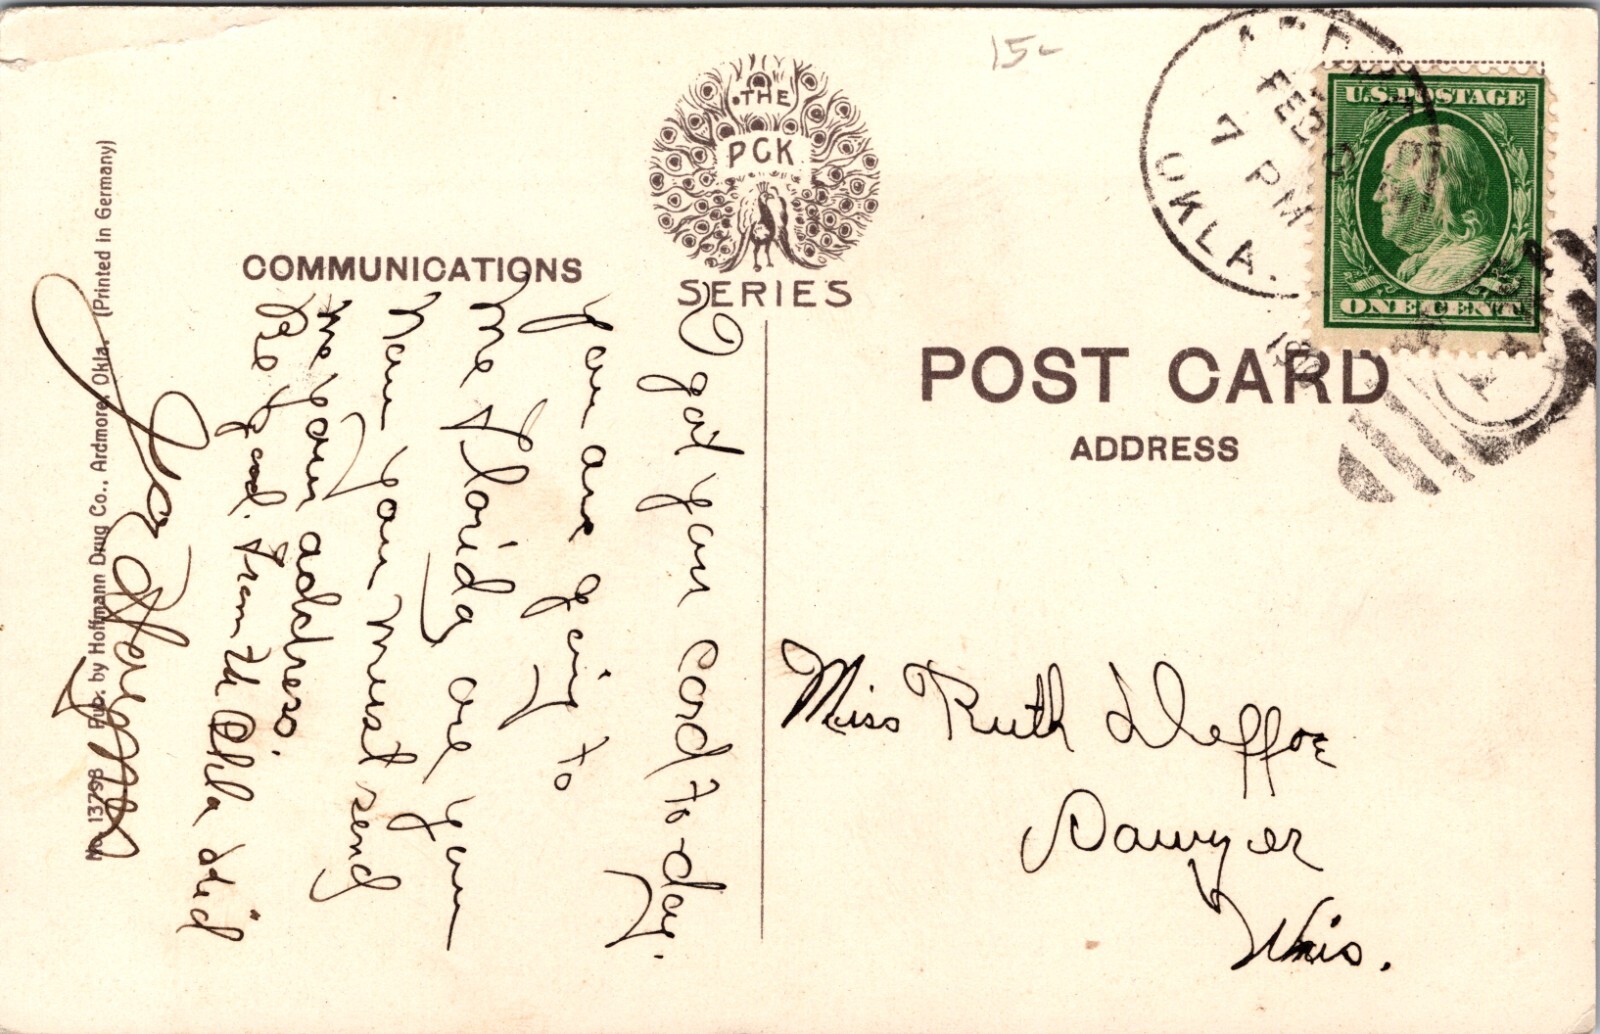 15-
THE
PCK
SERIES
COMMUNICATIONS
I got your card to-day.
You are going to
Me Florida are you
Now you must send
me your address.
Be good. From
Okla
POST CARD
ADDRESS
Miss Ruth Deffoe
Sawyer
Wis.
FEB
7 PM
OKLA.
U.S. POSTAGE
ONE CENT
No. 13798 Pub. by Hoffmann Drug Co., Ardmore, Okla. (Printed in Germany)